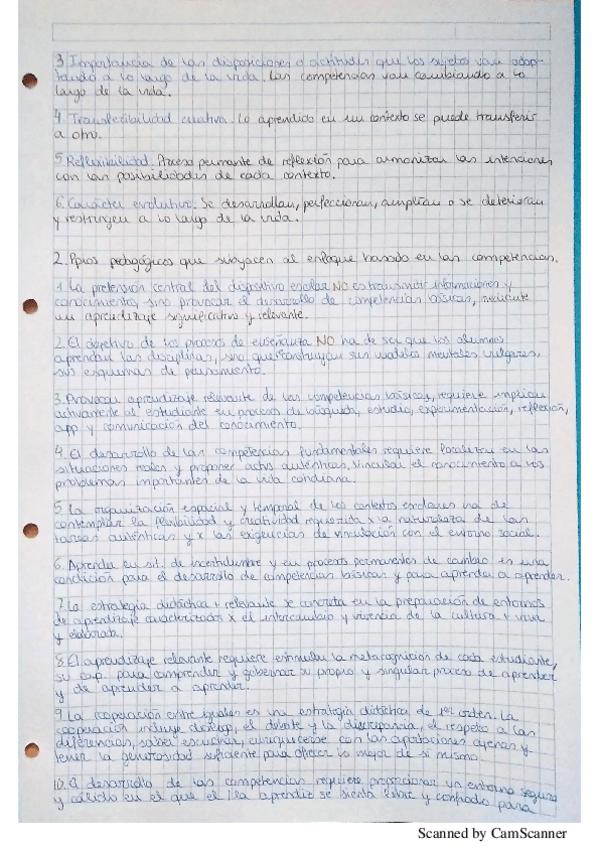 3. Importancia de las disposiciones o actitudes que los sujetos van adop-
tando a lo largo de la vida. Las competencias van cambiando a lo
largo de la vida.
4. Transferibilidad creativa. Lo aprendido en un contexto se puede transferir
a otro.
5. Reflexibilidad. Proceso permante de reflexión para armonizar las intenciones
con las posibilidades de cada contexto.
6. Carácter evolutivo: Se desarrollan, perfeccionan, amplían o se deterioran
y restringen a lo largo de la vida.
2. Ppios pedagógicos que subyacen al enfoque basado en las competencias.
1. La pretensión central del dispositivo escolar NO es transmitir informaciones y
conocimiento, sino provocar el desarrollo de competencias básicas, mediante
un aprendizaje significativo y relevante.
2. El objetivo de los procesos de enseñanza NO ha de ser que los alumnos
aprendan las disciplinas, sino que construyan sus modelos mentales vulgares,
sus esquemas de pensamiento.
3. Provocar aprendizaje relevante de las competencias básicas, requiere implicar
activamente al estudiante en procesos de búsqueda, estudio, experimentación, reflexión,
app y comunicación del conocimiento.
4. El desarrollo de las competencias fundamentales requiere focalizar en las
situaciones reales y proponer actvs auténticas, vincular el conocimiento a los
problemas importantes de la vida cotidiana.
5. La organización espacial y temporal de los contextos escolares ha de
contemplar la flexibilidad y creatividad requerida x la naturaleza de las
tareas auténticas y x las exigencias de vinculación con el entorno social.
6. Aprender en sit. de incertidumbre y en procesos permanentes de cambio es una
condición para el desarrollo de competencias básicas y para aprender a aprender.
7. La estrategia didáctica + relevante se concreta en la preparación de entornos
de aprendizaje caracterizados x el intercambio y vivencia de la cultura + viva
y elaborada.
8. El aprendizaje relevante requiere estimular la metacognición de cada estudiante,
su cap. para comprender y gobernar su propio y singular proceso de aprender
y de aprender a aprender.
9. La cooperación entre iguales es una estrategia didáctica de 1er orden. La
cooperación incluye diálogo, el debate y la discrepancia, el respeto a las
diferencias, saber escuchar, enriquecerse con las aportaciones ajenas y
tener la generosidad suficiente para ofrecer lo mejor de sí mismo.
10. El desarrollo de las competencias requiere proporcionar un entorno seguro
y cálido en el que el/la aprendiz se sienta libre y confiado para
Scanned by CamScanner